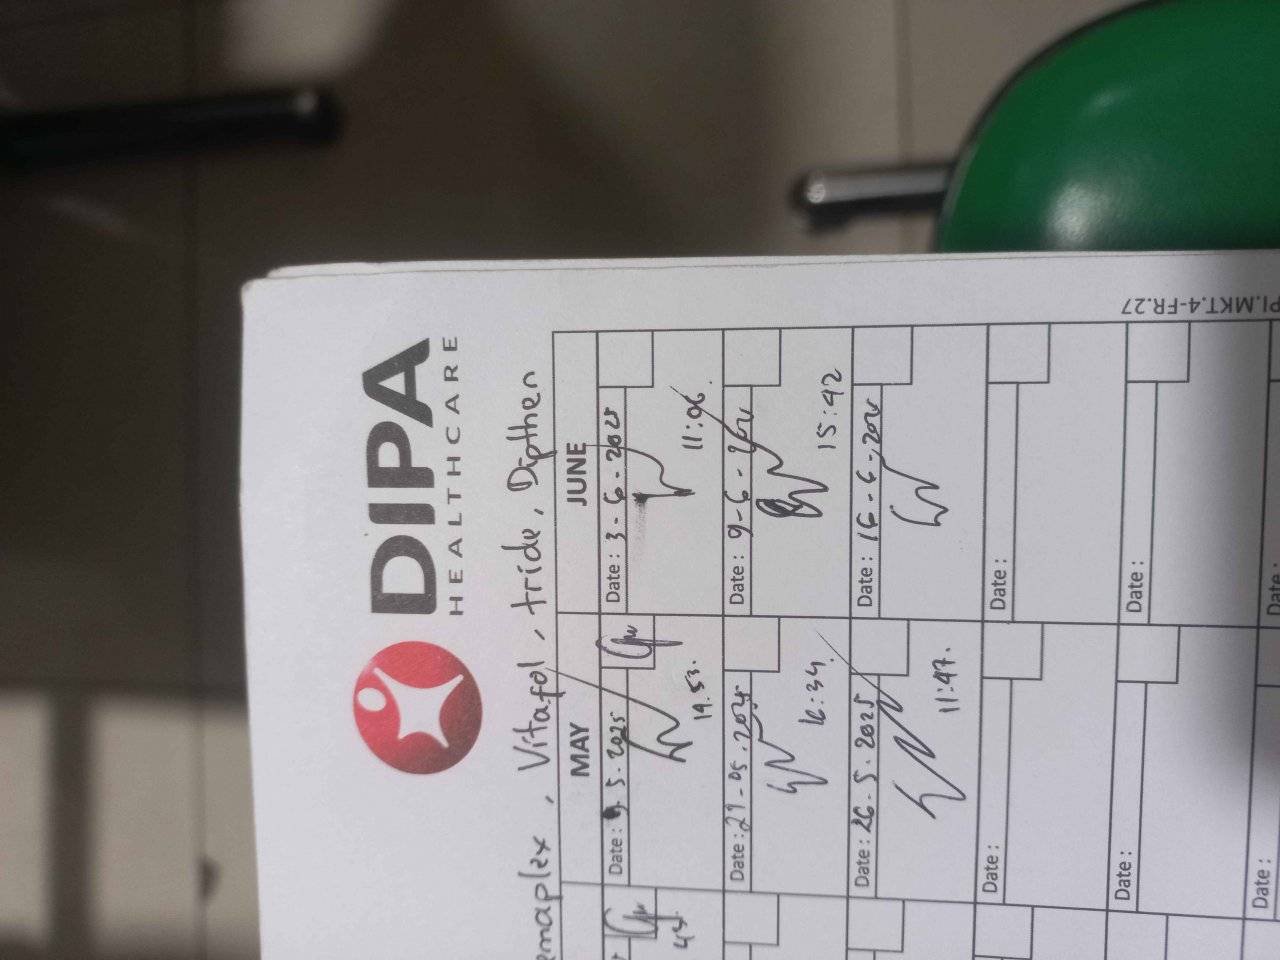 DIPA
HEALTHCARE
, Vitafol, tride, Dipthen
MAY JUNE
Date: 5.2025 Date: 3-6-2025
19.53. 11:06
Date: -05.2025 Date: 9-6-
15:42
Date: 26.5.2025 Date: 16-6-
11:47.
Date: Date:
Date: Date:
Date: Date
PI.MKT.4-FR.27